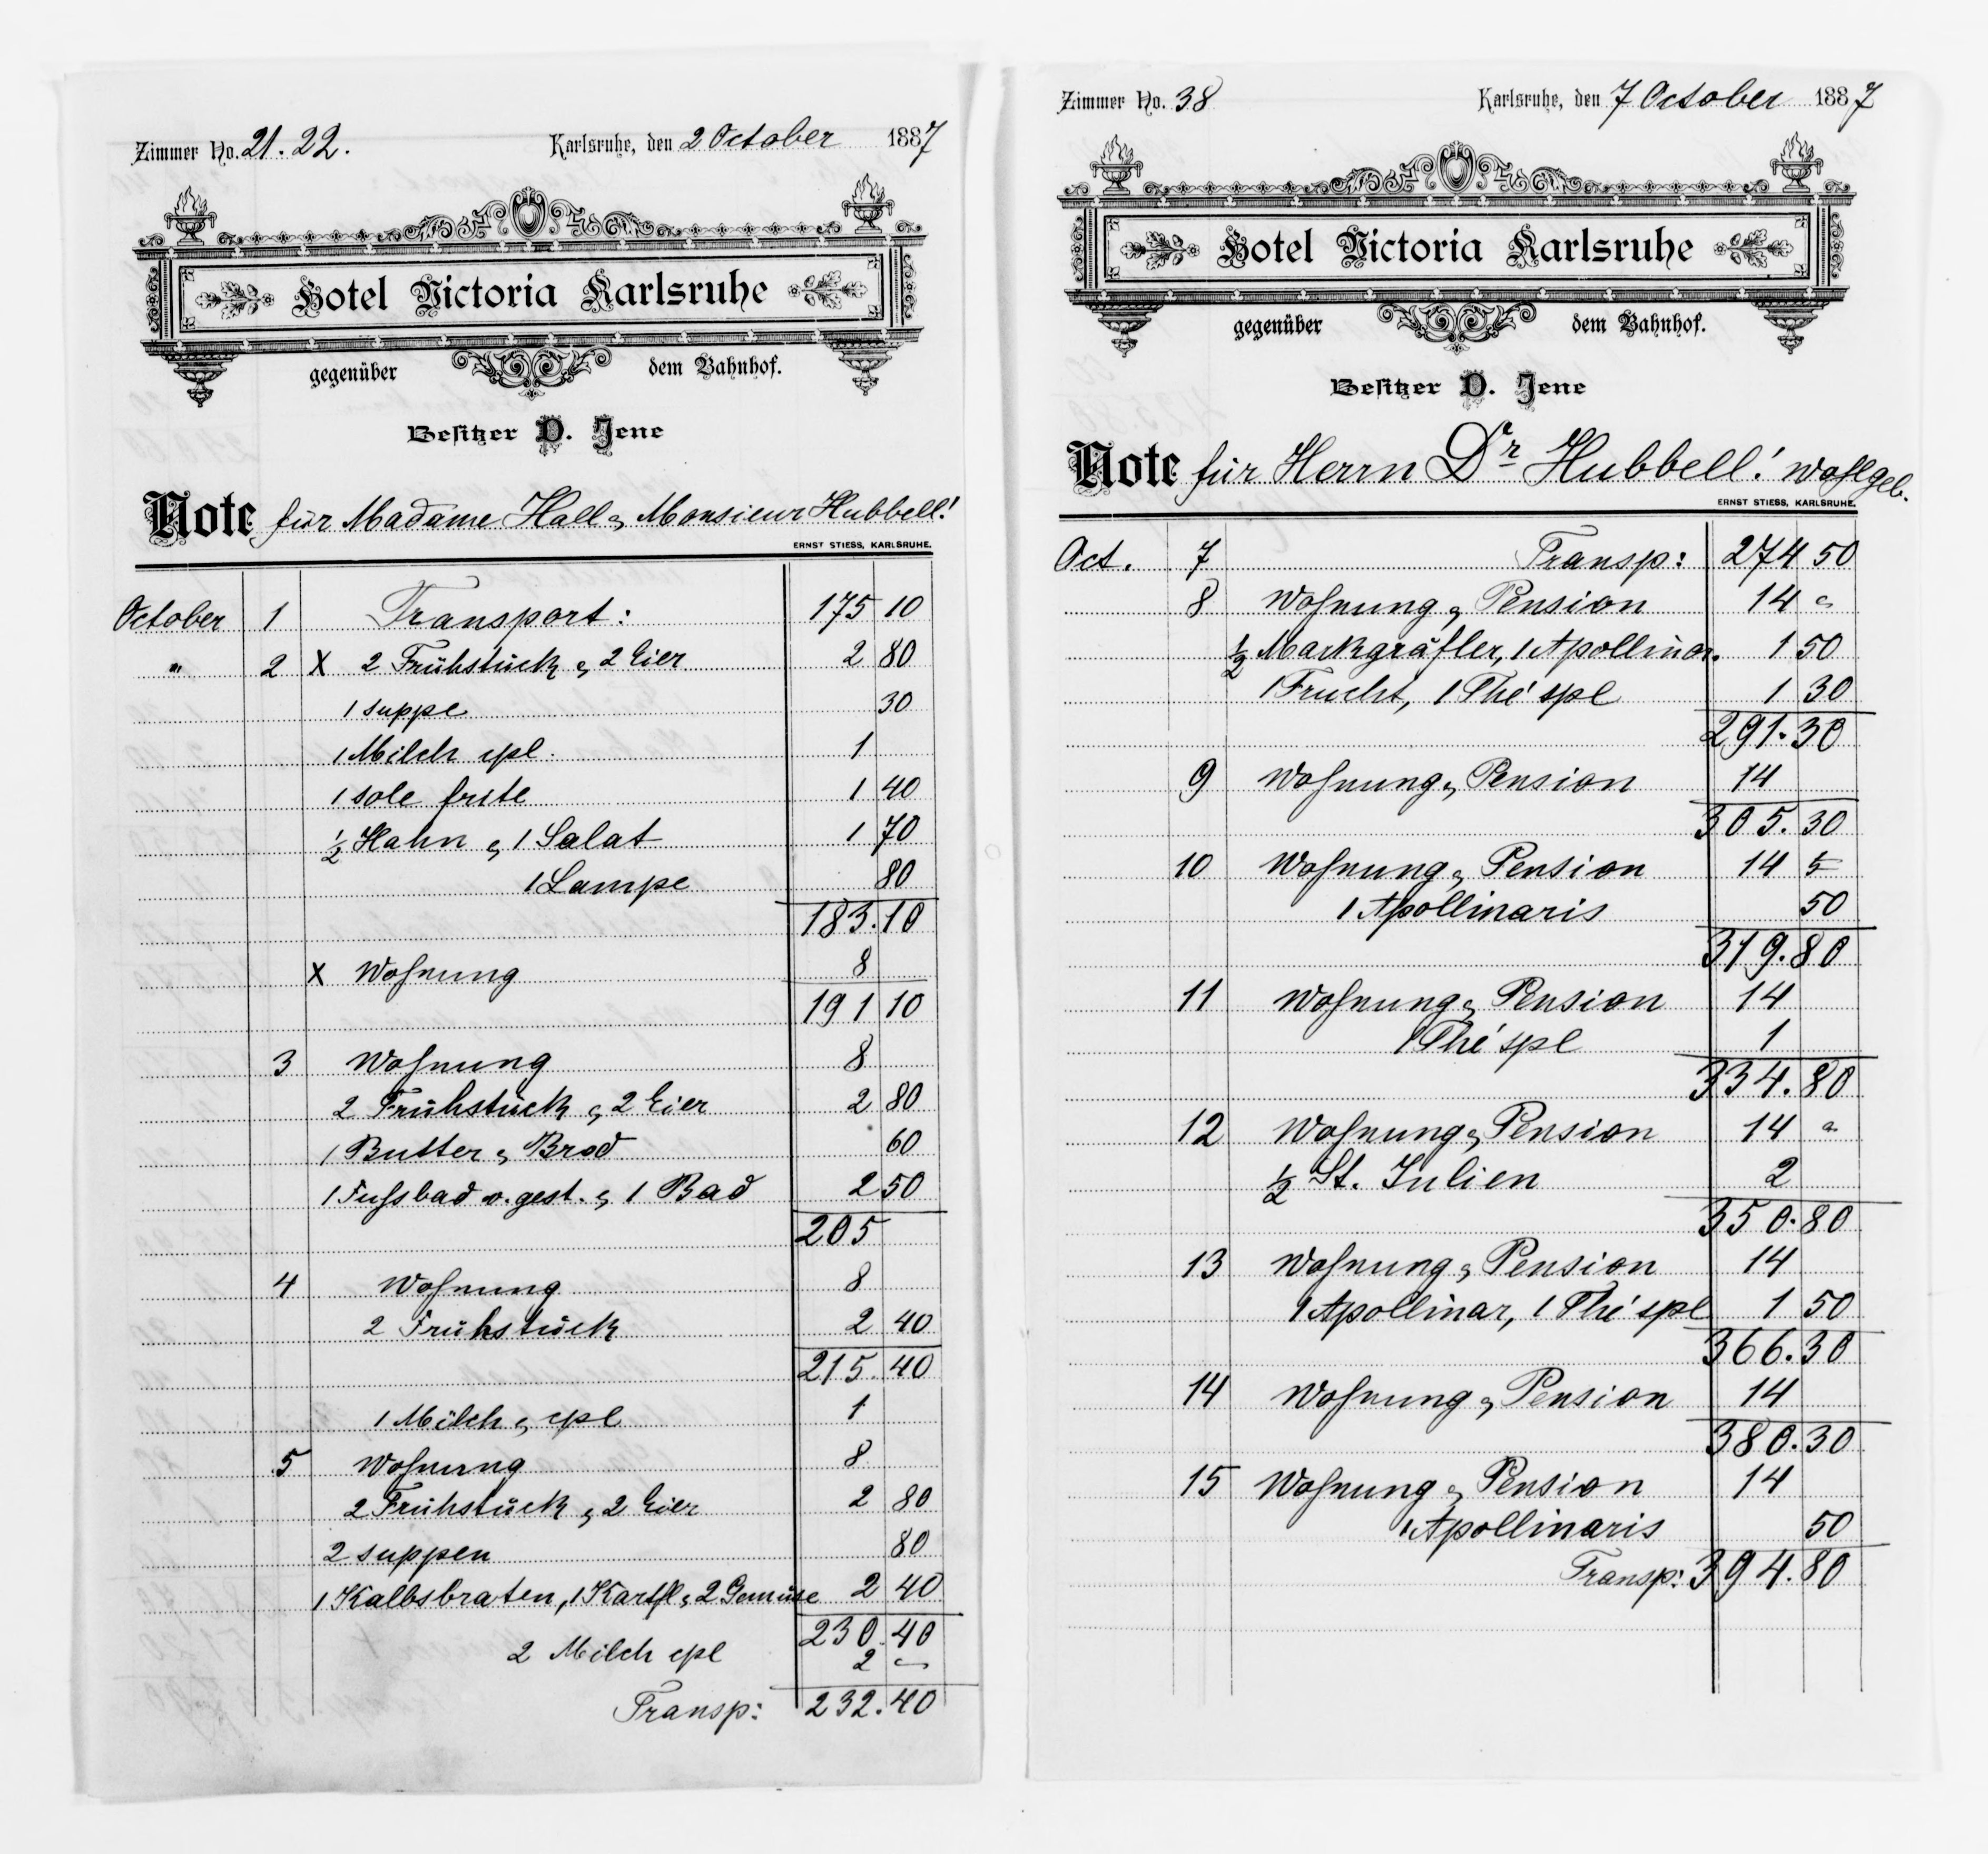 Zimmer No. 21. 22. Karlsruhe, den 2 October 1887
Hotel Victoria Karlsruhe
gegenüber dem Bahnhof.
Besitzer D. Jene
Note für Madame Hall & Monsieur Hubbell!
ERNST STIESS, KARLSRUHE.
October 1 Transport: 175 10
" 2 X 2 Frühstück & 2 Eier 2 80
1 Suppe 30
1 Milch cpl. 1
1 sole frite 1 40
½ Hahn & 1 Salat 1 70
1 Lampe 80
183.10
X Wohnung 8
191 10
3 Wohnung 8
2 Frühstück & 2 Eier 2 80
1 Butter & Brod 60
1 Fußbad v. gest. & 1 Bad 2 50
205
4 Wohnung 8
2 Frühstück 2 40
215.40
1 Milch & cpl 1
5 Wohnung 8
2 Frühstück & 2 Eier 2 80
2 suppen 80
1 Kalbsbraten, 1 Kartfl & 2 Gemüse 2 40
230.40
2 Milch cpl 2 -
Transp: 232.40
Zimmer No. 38 Karlsruhe, den 7 October 1887
Hotel Victoria Karlsruhe
gegenüber dem Bahnhof.
Besitzer D. Jene
Note für Herrn Dr Hubbell! wohlgeb.
ERNST STIESS, KARLSRUHE.
Oct. 7 Transp: 274 50
8 Wohnung & Pension 14 -
½ Markgräfler, 1 Apollinar. 1 50
1 Frucht, 1 Thé spl 1 30
291.30
9 Wohnung & Pension 14
305.30
10 Wohnung & Pension 14
1 Apollinaris 50
319.80
11 Wohnung & Pension 14
1 Thé spl 1
334.80
12 Wohnung & Pension 14 -
½ St. Julien 2
350.80
13 Wohnung & Pension 14
1 Apollinar, 1 Thé spl 1 50
366.30
14 Wohnung & Pension 14
380.30
15 Wohnung & Pension 14
1 Apollinaris 50
Transp: 394.80